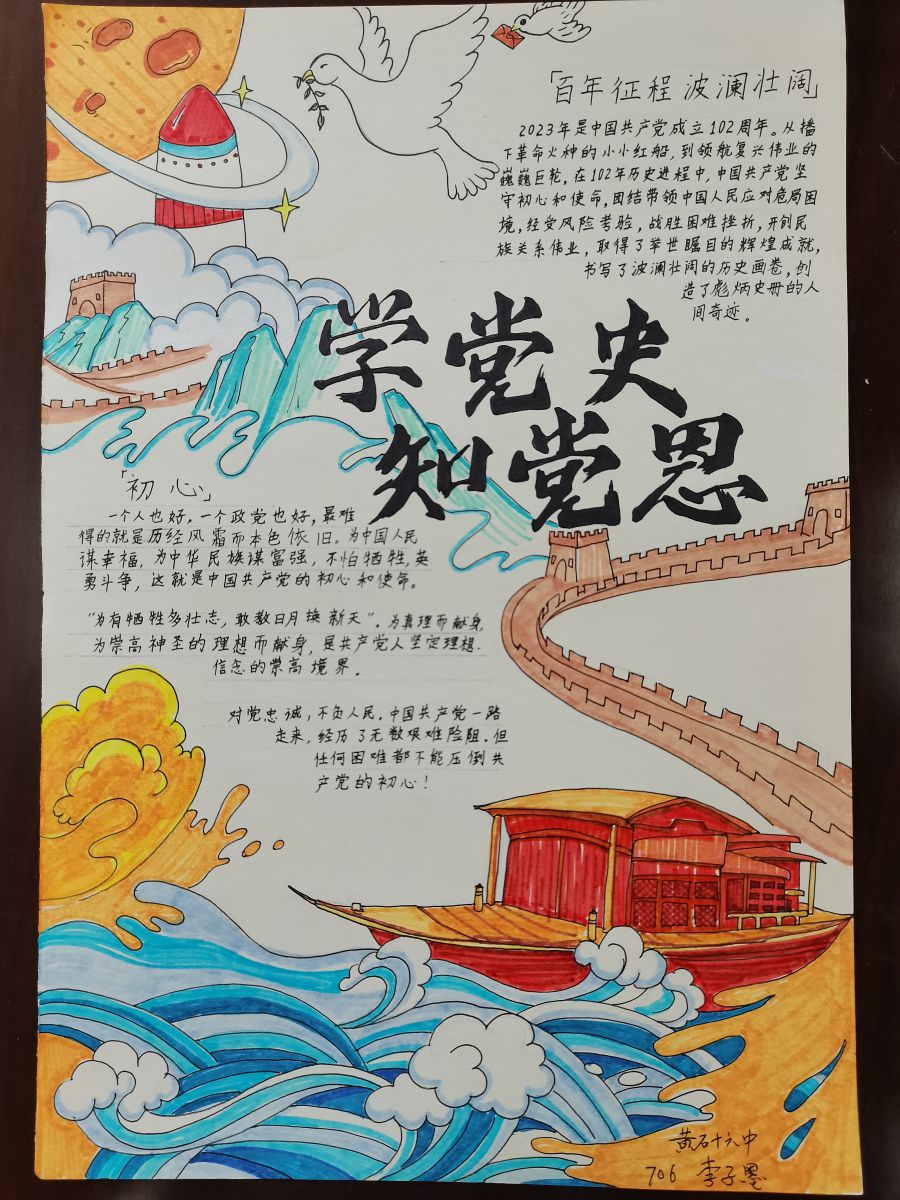 「百年征程波澜壮阔」
2023年是中国共产党成立102周年。从播
下革命火种的小小红船，到领航复兴伟业的
巍巍巨轮，在102年历史进程中，中国共产党坚
守初心和使命，团结带领中国人民应对危局困
境，经受风险考验，战胜困难挫折，开创民
族关系伟业，取得了举世瞩目的辉煌成就，
书写了波澜壮阔的历史画卷，创
造了彪炳史册的人
间奇迹。
学党史
知党恩
「初心」
一个人也好，一个政党也好，最难
得的就是历经风霜而本色依旧。为中国人民
谋幸福，为中华民族谋富强，不怕牺牲，英
勇斗争，这就是中国共产党的初心和使命。
“为有牺牲多壮志，敢教日月换新天”。为真理而献身，
为崇高神圣的理想而献身，是共产党人坚定理想、
信念的崇高境界。
对党忠诚，不负人民。中国共产党一路
走来，经历了无数艰难险阻。但
任何困难都不能压倒共
产党的初心！
黄石十六中
706 李子墨